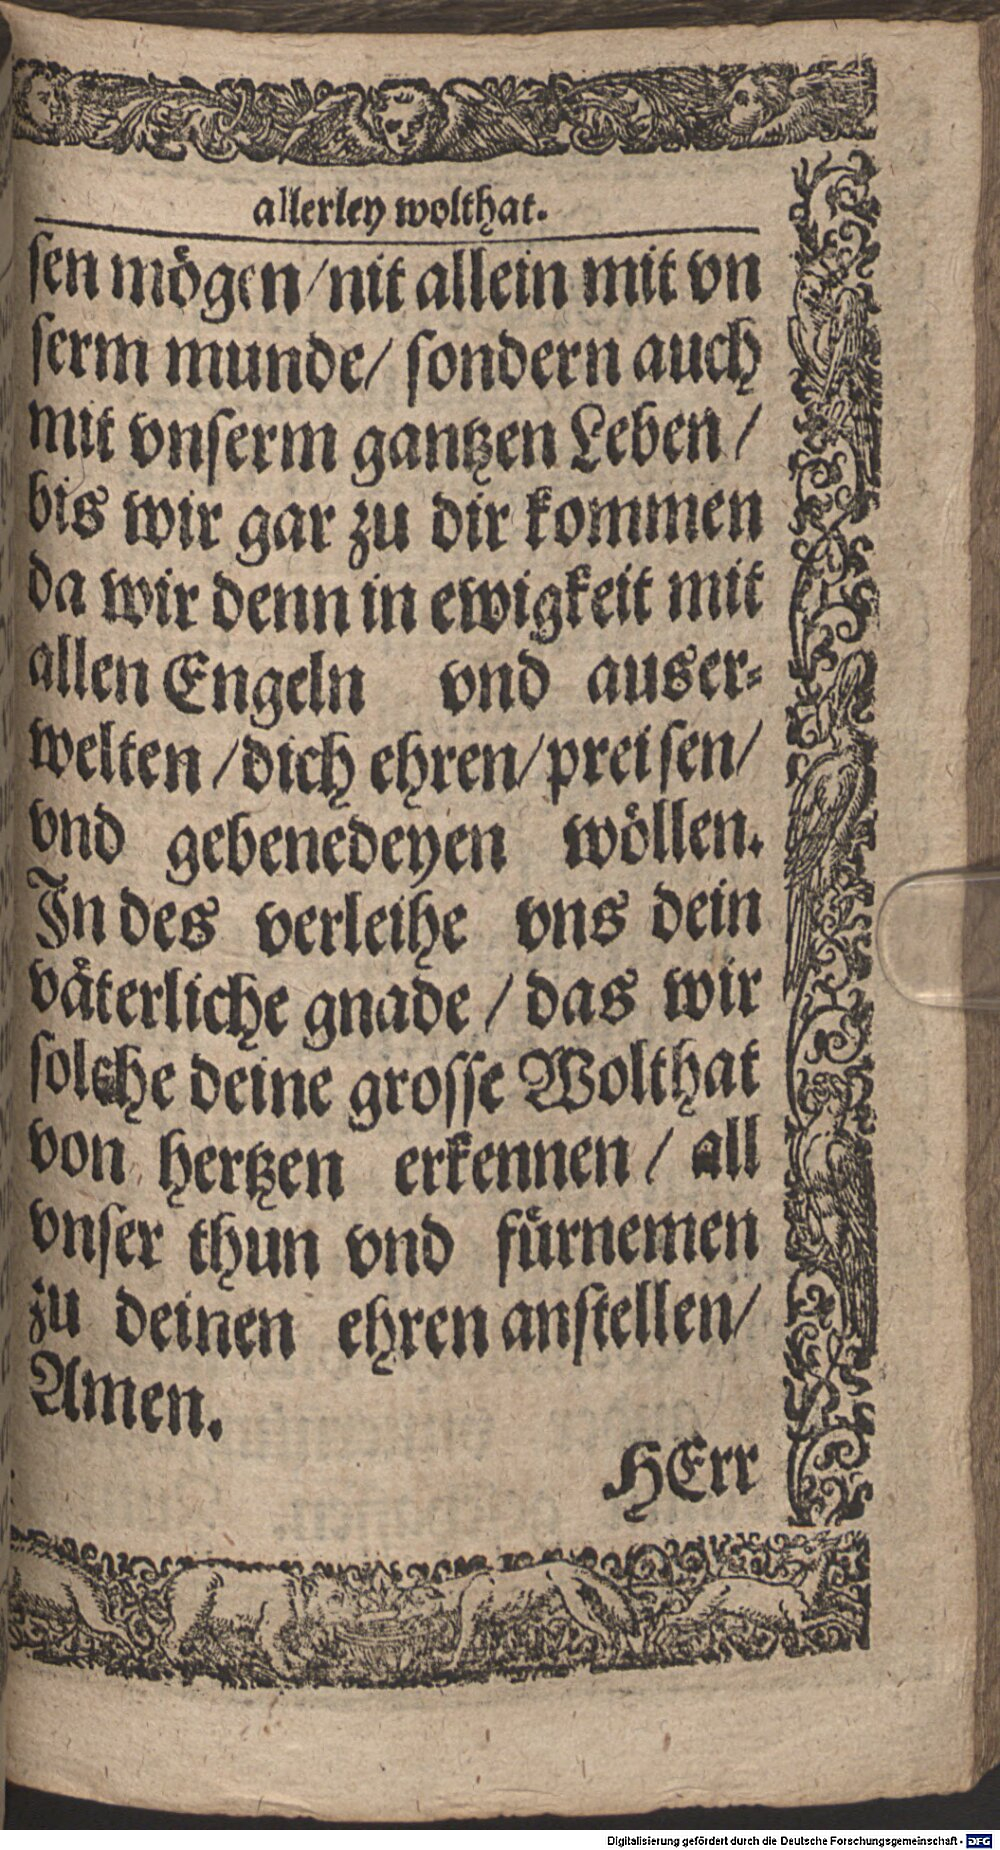 allerley wolthat.
sen mögen/nit allein mit vn
serm munde/ sondern auch
mit vnserm gantzen Leben/
bis wir gar zu dir kommen
da wir denn in ewigkeit mit
allen Engeln vnd auser-
welten/dich ehren/preisen/
vnd gebenedeyen wöllen.
In des verleihe vns dein
väterliche gnade/ das wir
solche deine grosse Wolthat
von hertzen erkennen/ all
vnser thun vnd fürnemen
zu deinen ehren anstellen/
Amen.
HErr
Digitalisierung gefördert durch die Deutsche Forschungsgemeinschaft - DFG